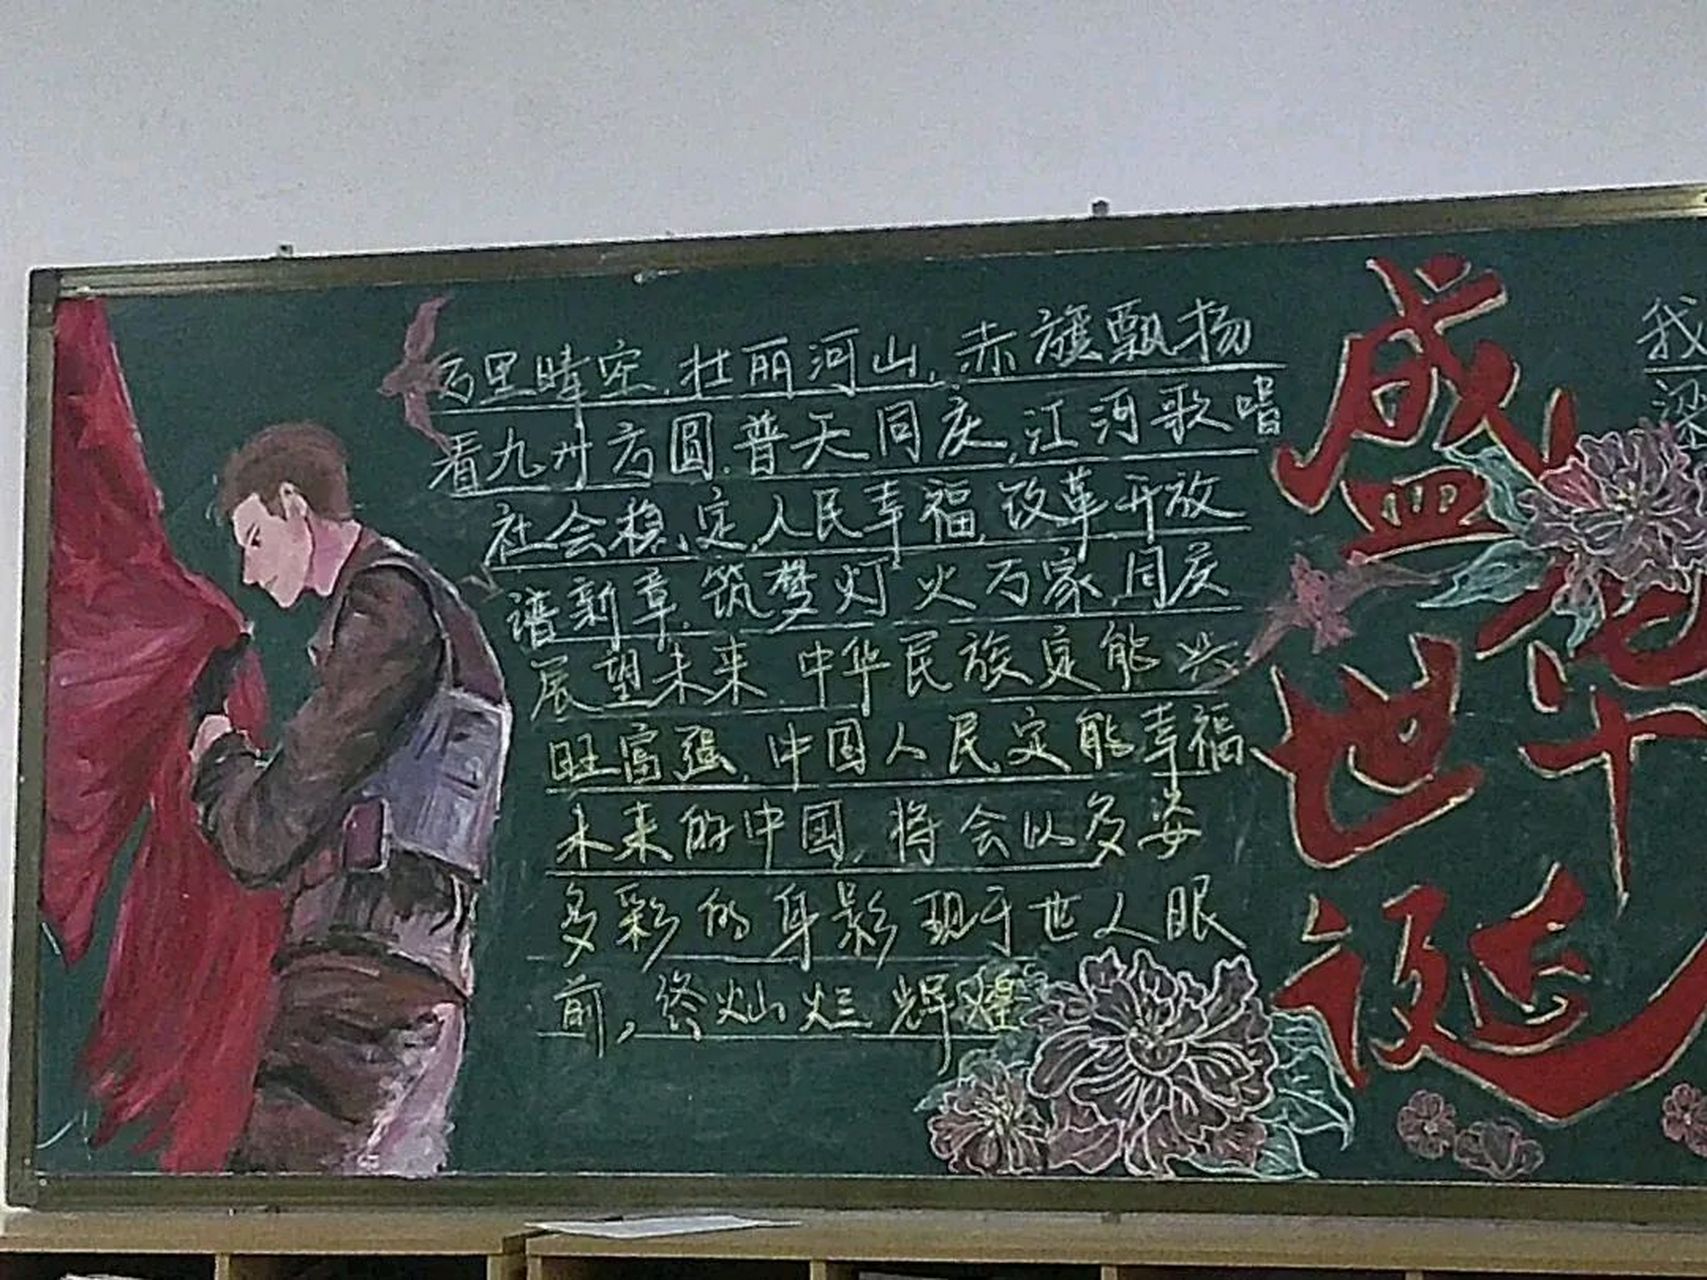 万里晴空,壮丽河山,赤旗飘扬
看九州方圆,普天同庆,江河歌唱
社会稳定,人民幸福,改革开放
谱新章,筑梦灯火万家,同庆
展望未来,中华民族定能兴
旺富强,中国人民定能幸福
未来的中国,将会以多姿
多彩的身影现于世人眼
前,终灿烂辉煌
盛世
华诞
我
梁